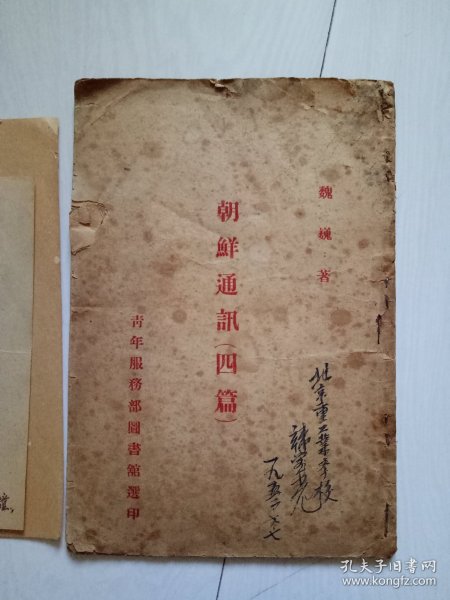 魏巍 著
朝鮮通訊（四篇）
青年服務部圖書舘選印
北京重工業学校
一九五
孔夫子旧书网
www.kongfz.com